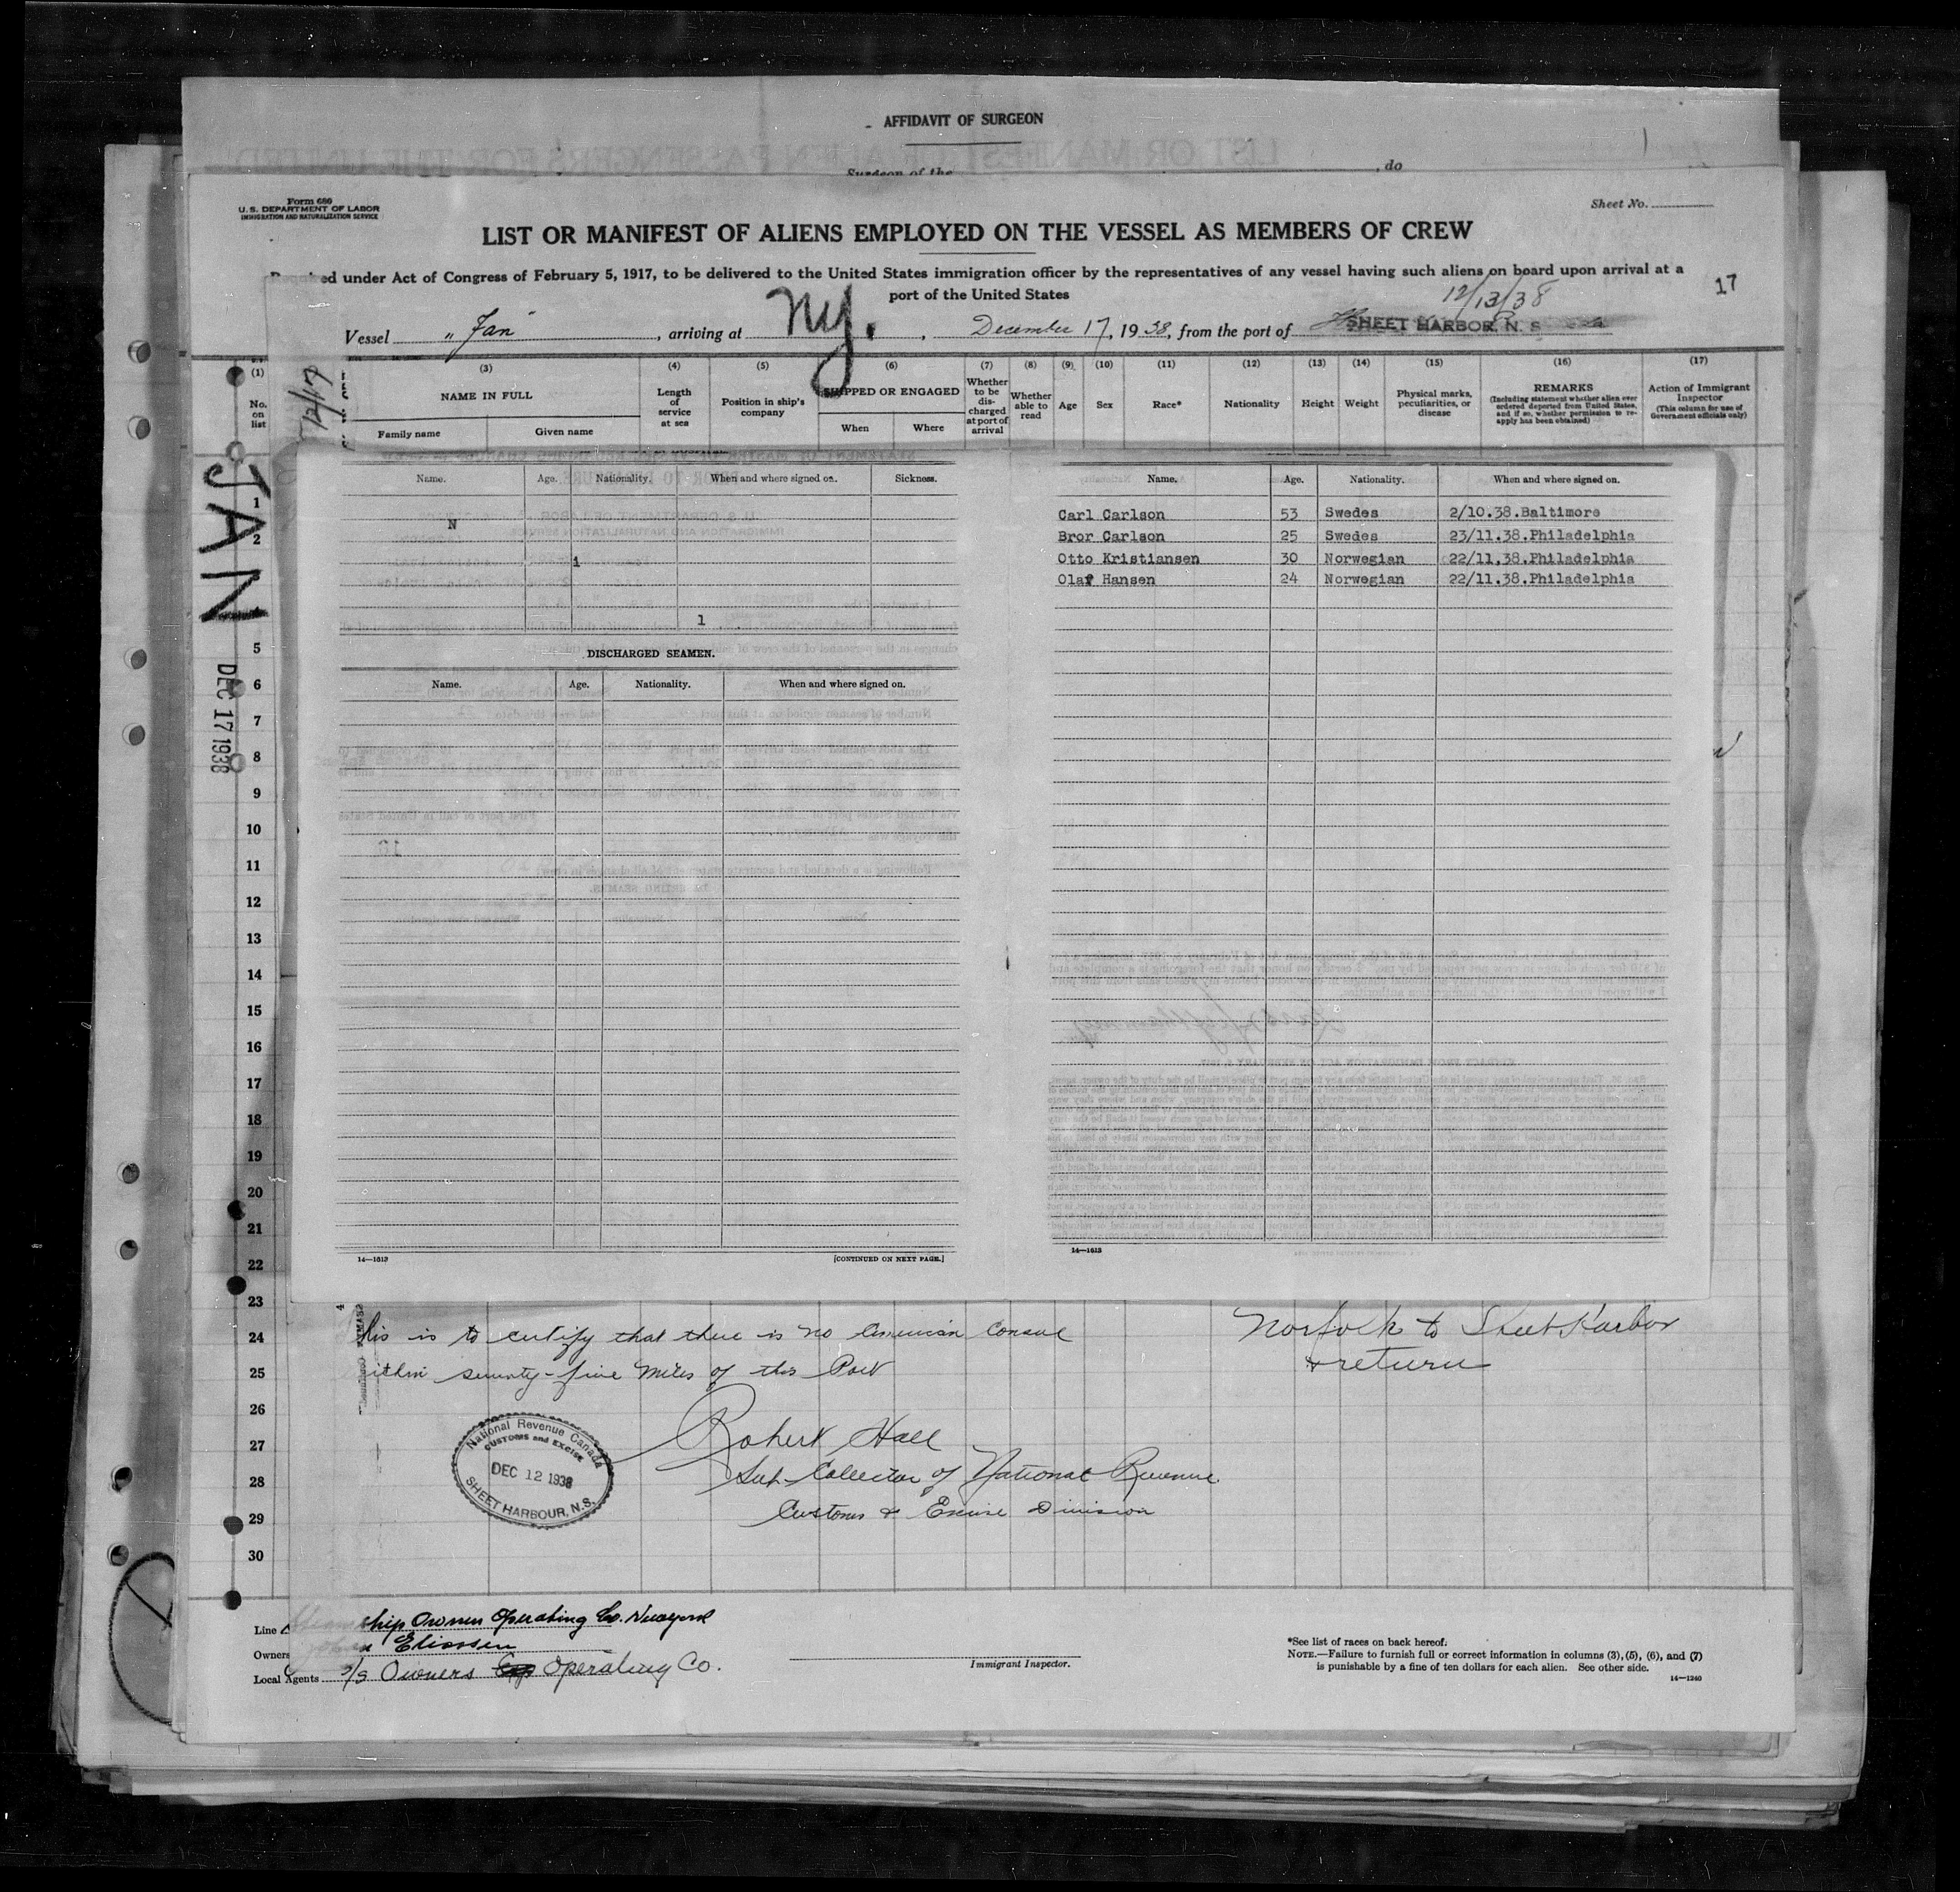 AFFIDAVIT OF SURGEON
Surgeon of the , do
Form 680
U. S. DEPARTMENT OF LABOR
IMMIGRATION AND NATURALIZATION SERVICE
Sheet No.
LIST OR MANIFEST OF ALIENS EMPLOYED ON THE VESSEL AS MEMBERS OF CREW
ed under Act of Congress of February 5, 1917, to be delivered to the United States immigration officer by the representatives of any vessel having such aliens on board upon arrival at a
port of the United States
12/13/38
17
Vessel "Jan", arriving at NY., December 17, 1938, from the port of SHEET HARBOR, N. S
(1) (3) (4) (5) (6) (7) (8) (9) (10) (11) (12) (13) (14) (15) (16) (17)
No. on list
NAME IN FULL
Family name Given name
Length of service at sea
Position in ship's company
SHIPPED OR ENGAGED
When Where
Whether to be discharged at port of arrival
Whether able to read
Age
Sex
Race*
Nationality
Height
Weight
Physical marks, peculiarities, or disease
REMARKS
(Including statement whether alien ever ordered deported from United States, and if so, whether permission to reapply has been obtained)
Action of Immigrant Inspector
(This column for use of Government officials only)
JAN
DEC 17 1938
Name. Age. Nationality. When and where signed on. Sickness.
N
i
l
DISCHARGED SEAMEN.
Name. Age. Nationality. When and where signed on.
14—1613 [CONTINUED ON NEXT PAGE.]
Name. Age. Nationality. When and where signed on.
Carl Carlson 53 Swedes 2/10.38.Baltimore
Bror Carlson 25 Swedes 23/11.38.Philadelphia
Otto Kristiansen 30 Norwegian 22/11.38.Philadelphia
Olaf Hansen 24 Norwegian 22/11.38.Philadelphia
14—1613
1
2
5
6
7
8
9
10
11
12
13
14
15
16
17
18
19
20
21
22
23
24
25
26
27
28
29
30
his is to certify that there is no American Consul
ithin seventy-five miles of this Port
Robert Hall
Sub-Collector of National Revenue
Customs & Excise Division
National Revenue Canada
CUSTOMS and EXCISE
DEC 12 1938
SHEET HARBOUR, N.S.
Norfolk to Sheet Harbor
& return
Line ship Owners Operating Co. Newyork
Owners Eliassen
Local Agents S/S Owners Operating Co.
Immigrant Inspector.
*See list of races on back hereof.
NOTE.—Failure to furnish full or correct information in columns (3), (5), (6), and (7)
is punishable by a fine of ten dollars for each alien. See other side.
14—1240